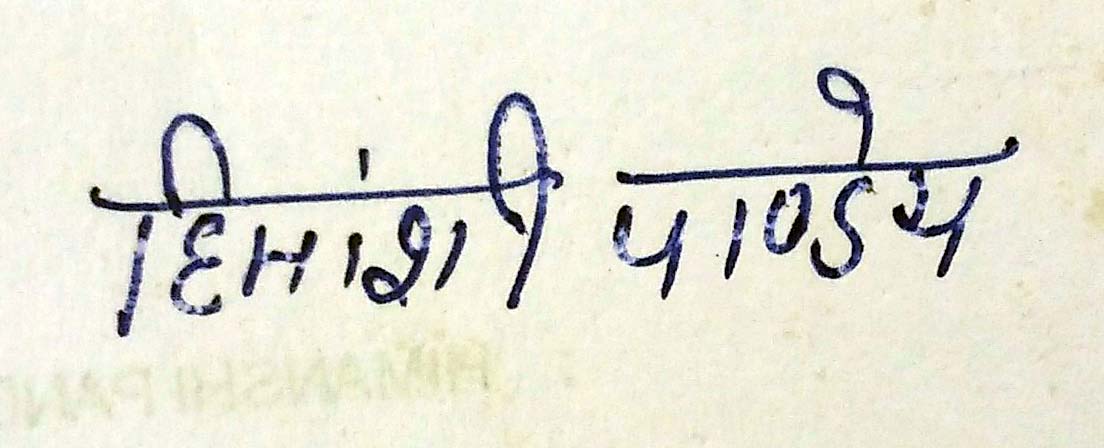 हिमांशी पाण्डेय
HIMANSHI PAN